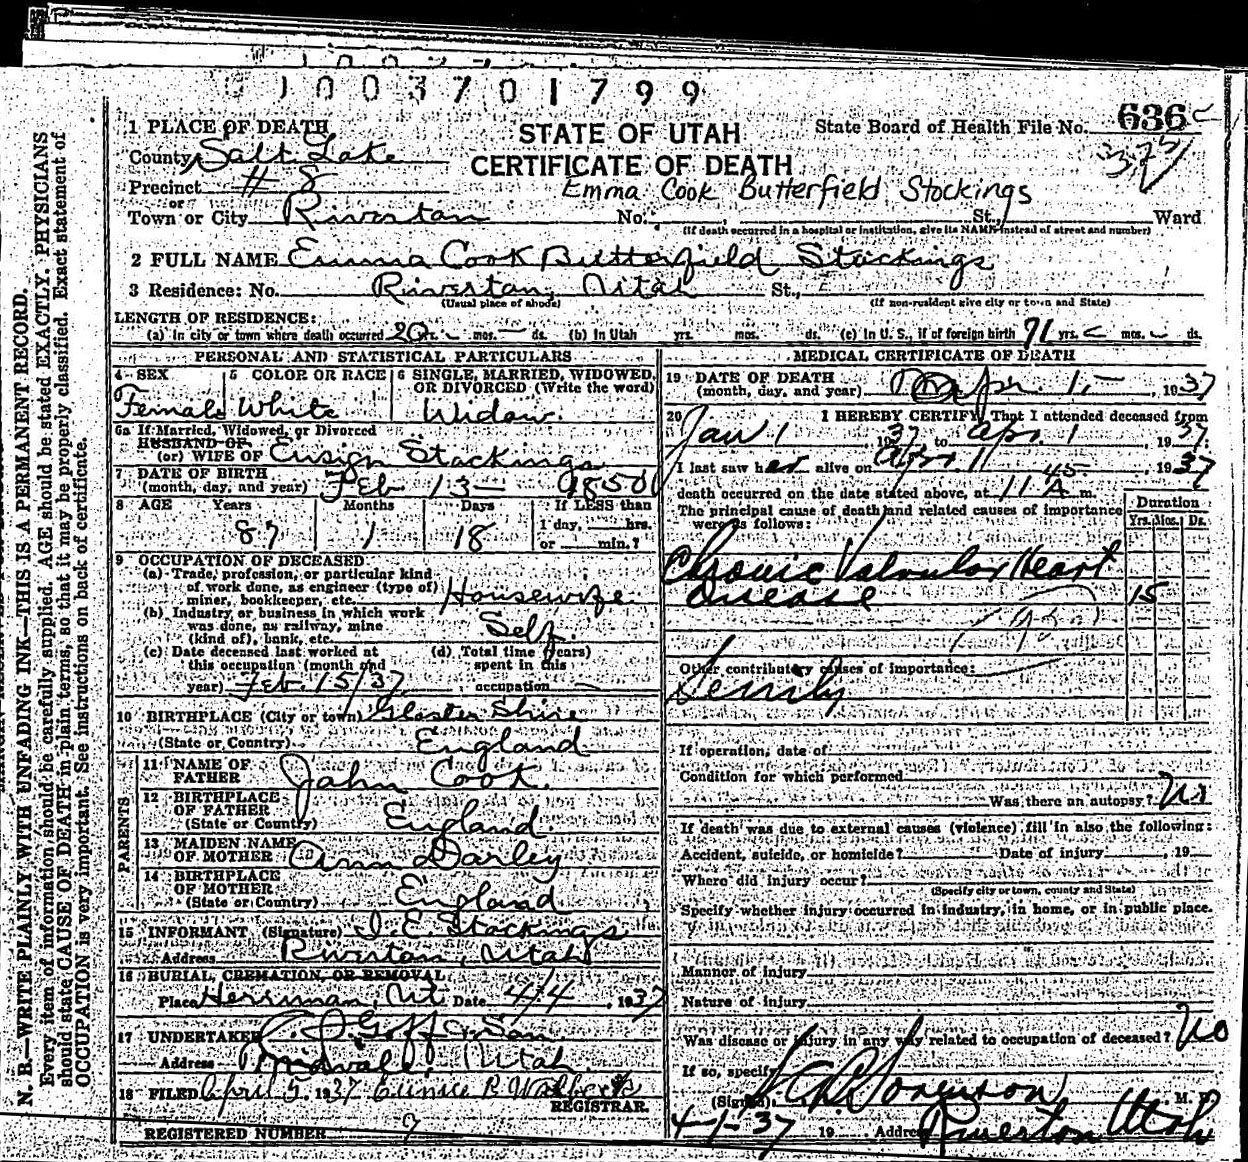 1003701799
STATE OF UTAH
CERTIFICATE OF DEATH
State Board of Health File No. 636
1 PLACE OF DEATH
County Salt Lake
Precinct # 8
or
Emma Cook Butterfield Stockings
Town or City Riverton No. St., Ward
(If death occurred in a hospital or institution, give its NAME instead of street and number)
2 FULL NAME Emma Cook Butterfield Stockings
3 Residence: No. Riverton, Utah St.,
(Usual place of abode) (If non-resident give city or town and State)
LENGTH OF RESIDENCE:
(a) In city or town where death occurred 20 mos. ds. (b) In Utah yrs. mos. ds. (c) In U. S., if of foreign birth 71 yrs. mos. ds.
PERSONAL AND STATISTICAL PARTICULARS
4 SEX 5 COLOR OR RACE 6 SINGLE, MARRIED, WIDOWED, OR DIVORCED (Write the word)
Female White Widow
6a If Married, Widowed, or Divorced
HUSBAND OF
(or) WIFE OF Ensign Stockings
7 DATE OF BIRTH
(month, day, and year) Feb 13 - 1850
8 AGE Years Months Days If LESS than
87 1 18 1 day, hrs.
or min.?
9 OCCUPATION OF DECEASED
(a) Trade, profession, or particular kind
of work done, as engineer (type of)
miner, bookkeeper, etc. Housewife
(b) Industry or business in which work
was done, as railway, mine
(kind of), bank, etc. Self
(c) Date deceased last worked at (d) Total time (years)
this occupation (month and spent in this
year) Feb. 15/37 occupation
10 BIRTHPLACE (City or town) Gloster Shire
(State or Country) England
PARENTS
11 NAME OF
FATHER John Cook
12 BIRTHPLACE
OF FATHER
(State or Country) England
13 MAIDEN NAME
OF MOTHER Ann Darley
14 BIRTHPLACE
OF MOTHER
(State or Country) England
15 INFORMANT (Signature) J. E. Stockings
Address Riverton, Utah
16 BURIAL, CREMATION OR REMOVAL
Place Herriman, Ut Date 4/4, 1937
17 UNDERTAKER Goff & Son
Address Midvale, Utah
18 FILED April 5, 1937 Eunice P.
REGISTRAR.
REGISTERED NUMBER 9
MEDICAL CERTIFICATE OF DEATH
19 DATE OF DEATH
(month, day, and year) Apr. 1, - , 1937
20 I HEREBY CERTIFY, That I attended deceased from
Jan 1 1937, to Apr. 1 1937;
I last saw her alive on Apr. 1 1937
death occurred on the date stated above, at 11 45 A m.
The principal cause of death and related causes of importance
were as follows:
Duration
Yrs. Mos. Ds.
Chronic Valvular Heart
Disease 15
Other contributory causes of importance:
Senility
If operation, date of
Condition for which performed
Was there an autopsy? No
If death was due to external causes (violence) fill in also the following:
Accident, suicide, or homicide? Date of injury , 19
Where did injury occur?
(Specify city or town, county and State)
Specify whether injury occurred in industry, in home, or in public place.
Manner of injury
Nature of injury
Was disease or injury in any way related to occupation of deceased? No
If so, specify
(Signed) Sorenson M. D.
4-1-37 19 Address Riverton Utah
N. B.—WRITE PLAINLY WITH UNFADING INK—THIS IS A PERMANENT RECORD.
Every item of information should be carefully supplied. AGE should be stated EXACTLY. PHYSICIANS
should state CAUSE OF DEATH in plain terms, so that it may be properly classified. Exact statement of
OCCUPATION is very important. See instructions on back of certificate.